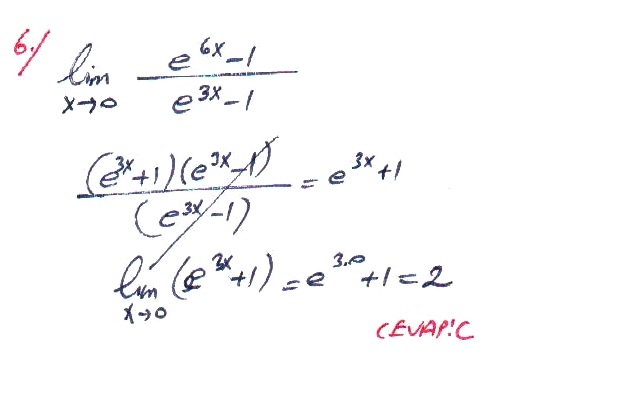 6.) lim x→0 (e^{6x} - 1) / (e^{3x} - 1)
(e^{3x} + 1)(e^{3x} - 1) / (e^{3x} - 1) = e^{3x} + 1
lim x→0 (e^{3x} + 1) = e^{3.0} + 1 = 2
CEVAP:C